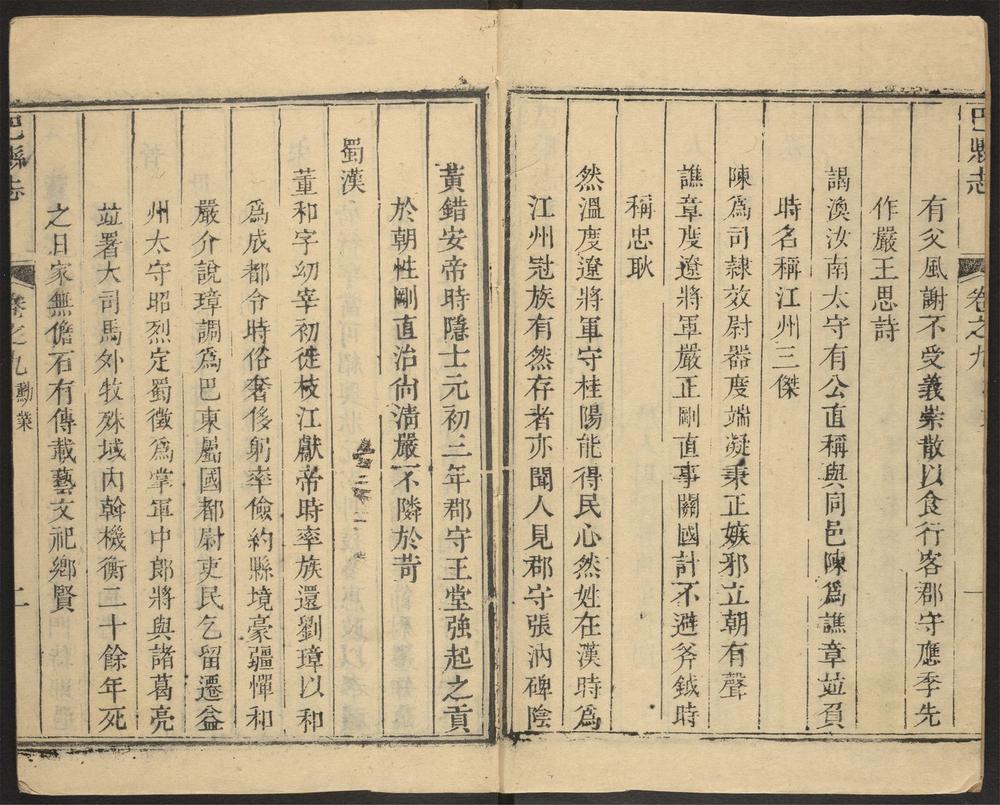 巴縣志
卷之九
一
有父風謝不受義崇散以食行客郡守應季先
作嚴王思詩
謁渙汝南太守有公直稱與同邑陳爲譙章並負
時名稱江州三傑
陳爲司隸效尉器度端凝秉正嫉邪立朝有聲
譙章度遼將軍嚴正剛直事關國計不避斧鉞時
稱忠耿
然溫度遼將軍守桂陽能得民心然姓在漢時爲
江州冠族有然存者亦聞人見郡守張汭碑陰
黃錯安帝時隱士元初三年郡守王堂強起之貢
於朝性剛直治尚淸嚴不隣於苛
蜀漢
董和字幼宰初從枝江獻帝時率族還劉璋以和
爲成都令時俗奢侈躬率儉約縣境豪疆憚和
嚴介說璋調爲巴東屬國都尉吏民乞留遷益
州太守昭烈定蜀徵爲掌軍中郎將與諸葛亮
並署大司馬外牧殊域內斡機衡二十餘年死
之日家無儋石有傳載藝文祀鄉賢
巴縣志
卷之九 勳業
二